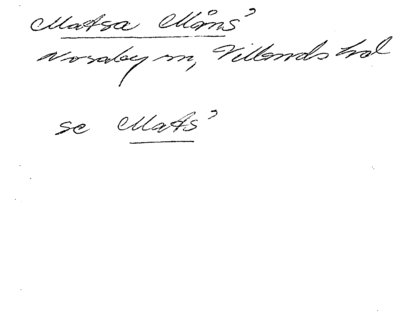 Matsa Måns'
Nosaby sn, Villands hd
se Mats'